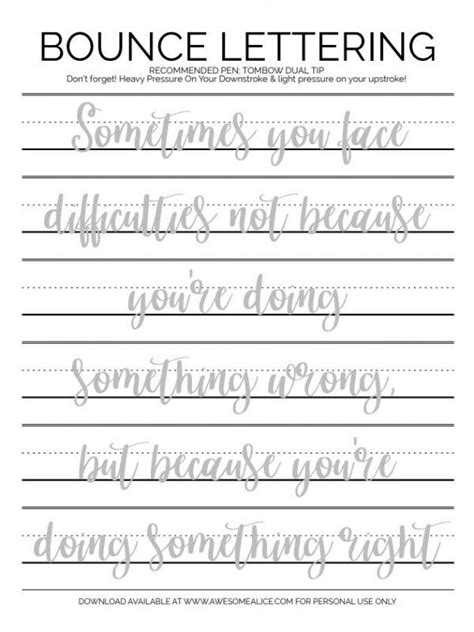 BOUNCE LETTERING
RECOMMENDED PEN: TOMBOW DUAL TIP
Don't forget! Heavy Pressure On Your Downstroke & light pressure on your upstroke!
Sometimes you face
difficulties not because
you're doing
something wrong,
but because you're
doing something right
DOWNLOAD AVAILABLE AT WWW.AWESOMEALICE.COM FOR PERSONAL USE ONLY